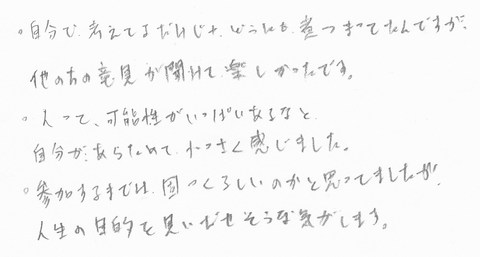 ・自分で考えてるだけじゃ、どうにも煮つまってたんですが、
他の方の意見が聞けて楽しかったです。
・人って、可能性がいっぱいあるなと、
自分が、あらためて、小さく感じました。
・参加するまでは、固っくるしいのかと思ってましたが、
人生の目的を見いだせそうな気がします。